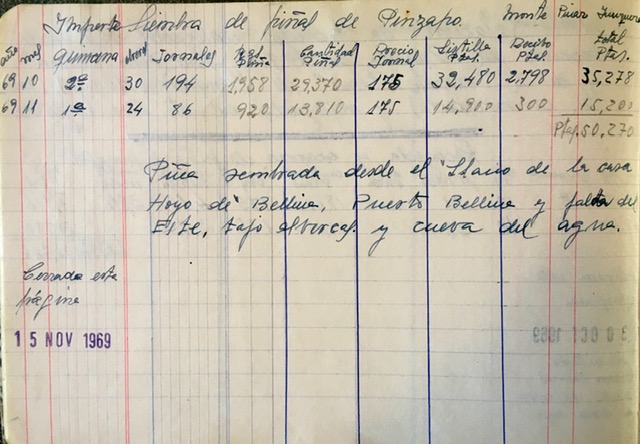 Importe Siembra de piñal de Pinzapo. Monte Pinar Yunquera
año mes quincena obreros Jornales Kgs Piña Cantidad Piñal Precio Jornal Listilla Ptas. Recibo Ptas. total Ptas.
69 10 2ª 30 194 1,958 29,370 175 32,480 2,798 35,278
69 11 1ª 24 86 920 13,810 175 14,900 300 15,201
Ptas. 50,270
Piña sembrada desde el Llano de la casa
Hoyo de Bellina, Puerto Bellina y falda del
Este, tajo albercas. y cueva del agua.
Cerrada esta
página
15 NOV 1969
30 OCT 1969